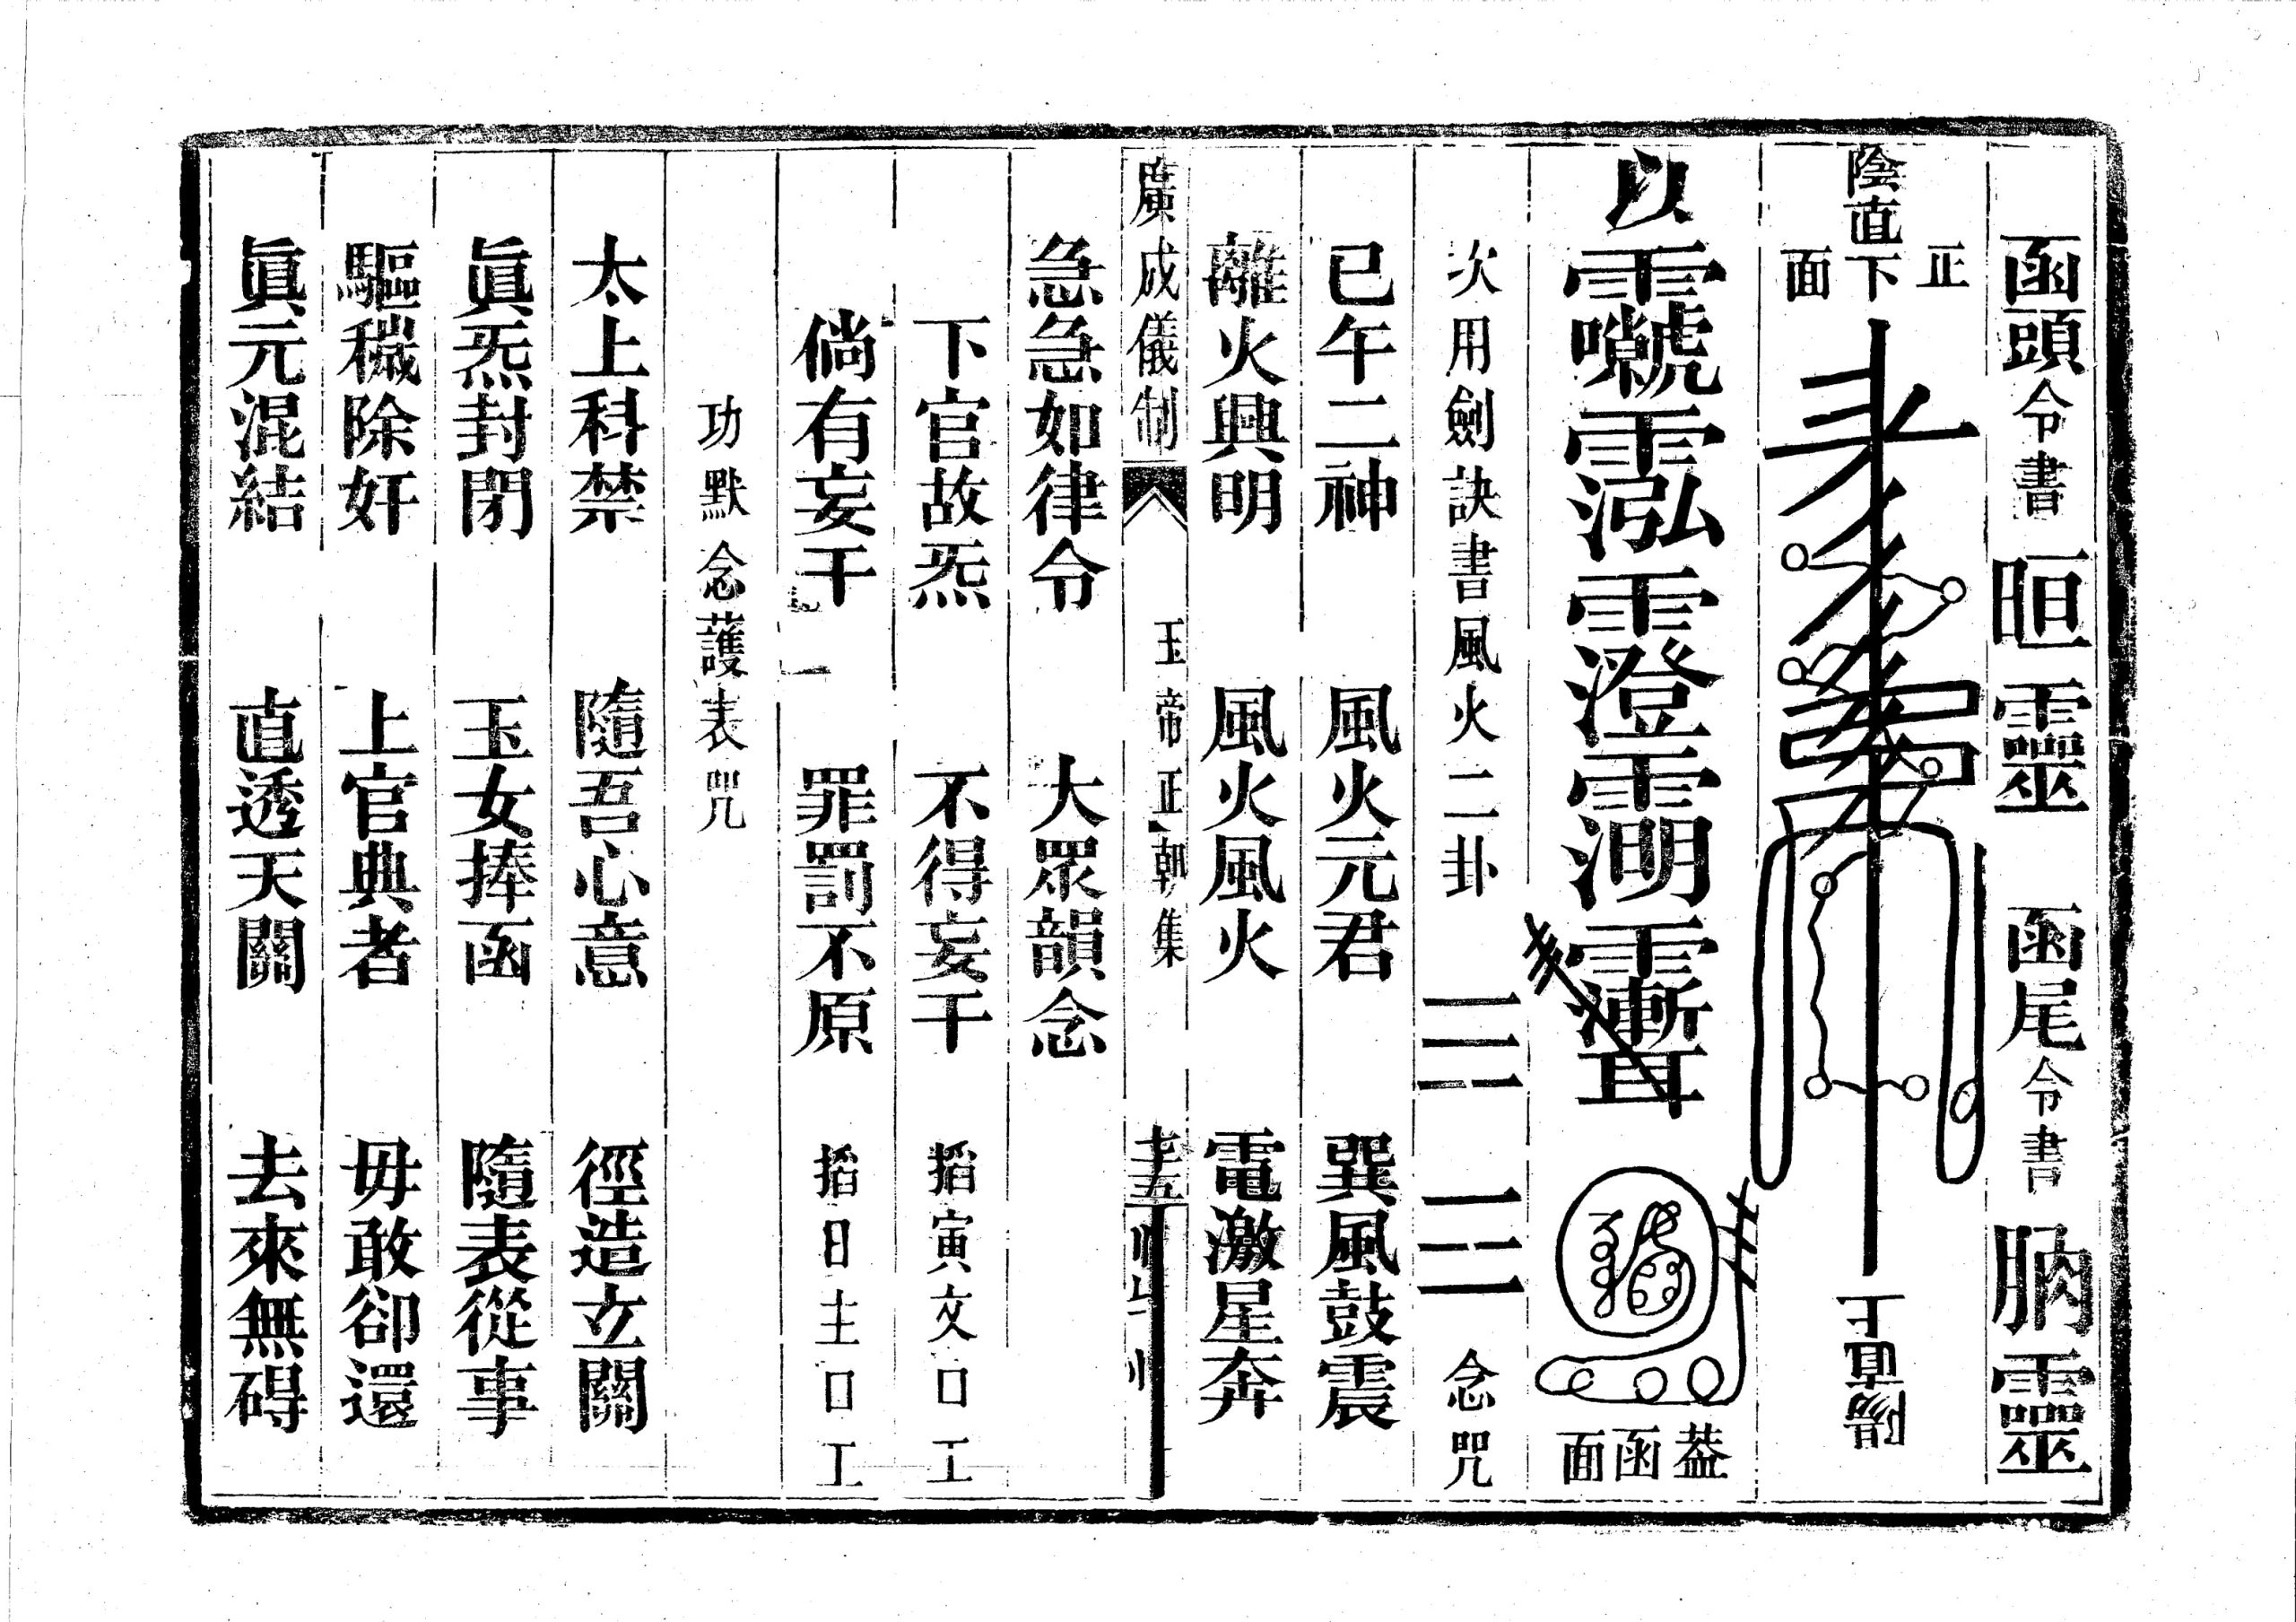 函頭令書 晅靈 函尾令書 肭靈
正
陰直下
面
以
葢函面
次用劍訣書風火二卦 ☴ ☲ 念咒
巳午二神 風火元君 巽風鼓震
離火興明 風火風火 電激星奔
廣成儀制 玉帝正朝集
急急如律令 大眾韻念
下官故炁 不得妄干 搯寅文口工
倘有妄干 罪罰不原 搯日主口工
功默念護表咒
太上科禁 隨吾心意 徑造立關
眞炁封閉 玉女捧函 隨表從事
驅穢除奸 上官典者 毋敢卻還
眞元混結 直透天關 去來無碍